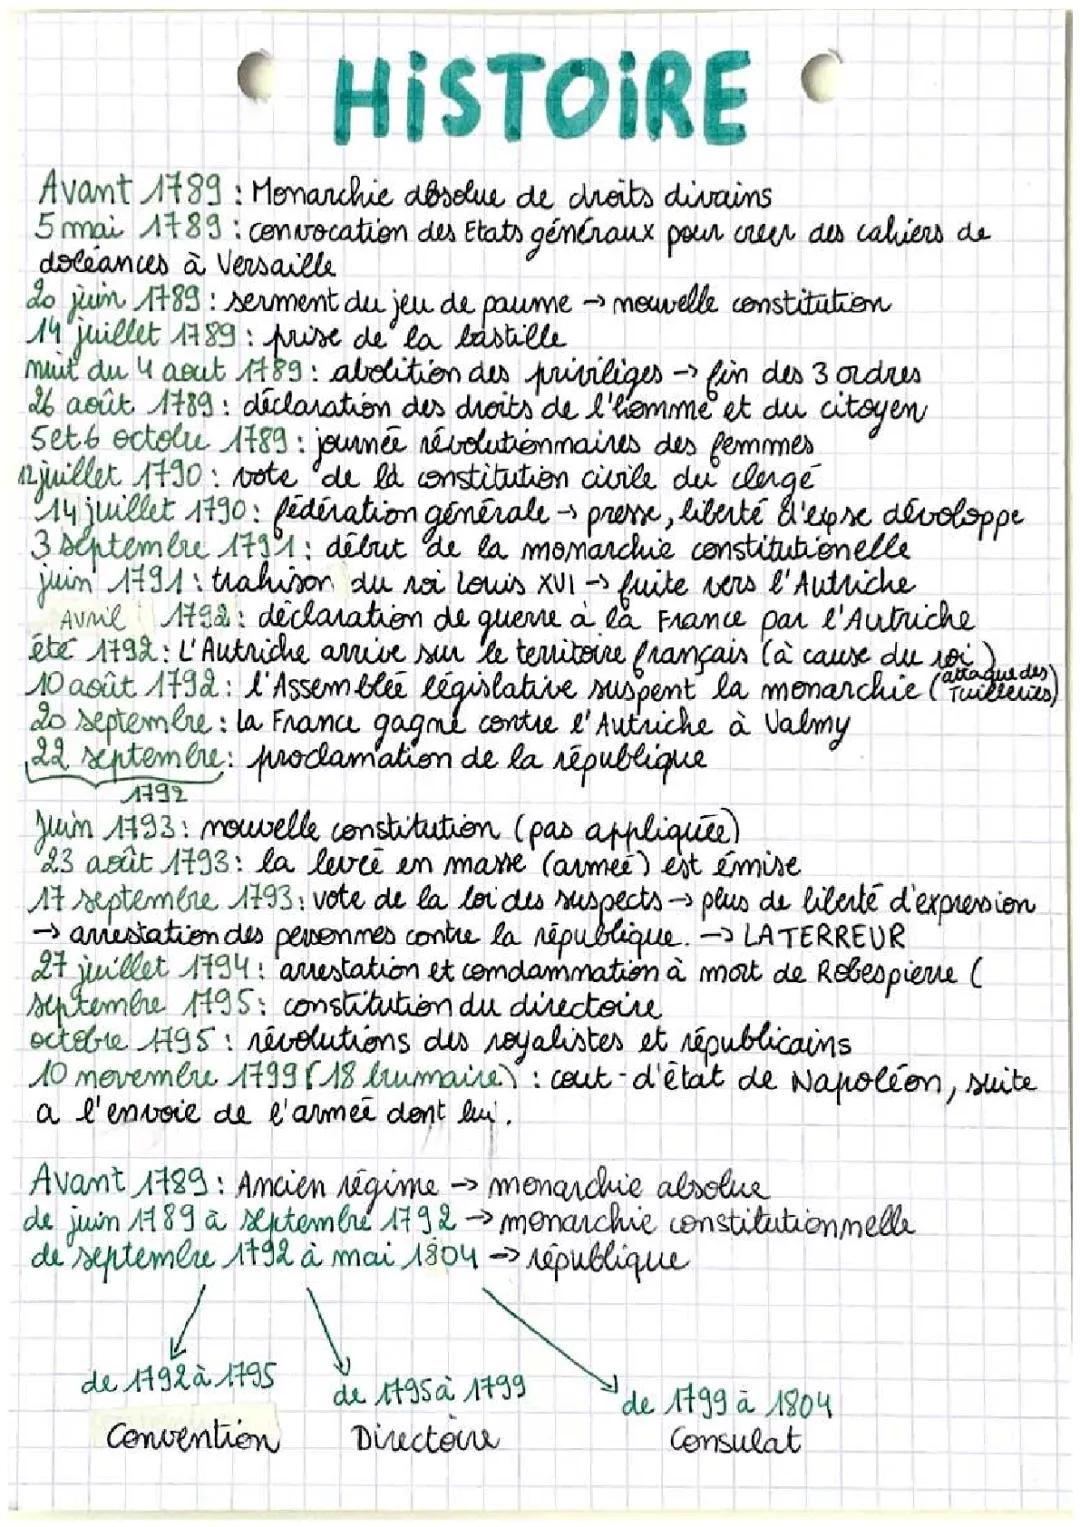 HiSTOiRE
Avant 1789 : Monarchie absolue de droits divains
5 mai 1789 : convocation des Etats généraux pour creer des cahiers de
doléances à Versaille
20 juin 1789 : serment du jeu de paume → nouvelle constitution
14 juillet 1789 : prise de la bastille
nuit du 4 aout 1789 : abolition des priviliges → fin des 3 ordres
26 août 1789 : déclaration des droits de l'homme et du citoyen
5 et 6 octobre 1789 : journée révolutionnaires des femmes
12 juillet 1790 : vote de la constitution civile du clergé
14 juillet 1790 : fédération générale → presse, liberté d'expse dévoloppe
3 septembre 1791 : début de la monarchie constitutionelle
juin 1791 : trahison du roi Louis XVI → fuite vers l'Autriche
Avril 1792 : déclaration de guerre à la France par l'Autriche
été 1792 : L'Autriche arrive sur le territoire français (à cause du roi)
10 août 1792 : l'Assemblée législative suspent la monarchie (attaque des Tuilleries)
20 septembre : la France gagne contre l'Autriche à Valmy
22 septembre : proclamation de la république
1792
Juin 1793 : nouvelle constitution (pas appliquée)
23 août 1793 : la levée en masse (armée) est émise
17 septembre 1793 : vote de la loi des suspects → plus de liberté d'expression
→ arrestation des personnes contre la république. → LA TERREUR
27 juillet 1794 : arrestation et comdamnation à mort de Robespierre (
septembre 1795 : constitution du directoire
octobre 1795 : révolutions des royalistes et républicains
10 novembre 1799 (18 brumaire) : cout-d'état de Napoléon, suite
a l'envoie de l'armée dont lui.
Avant 1789 : Ancien régime → monarchie absolue
de juin 1789 à septembre 1792 → monarchie constitutionnelle
de septembre 1792 à mai 1804 → république
de 1792 à 1795
de 1795 à 1799
de 1799 à 1804
Convention
Directoire
Consulat